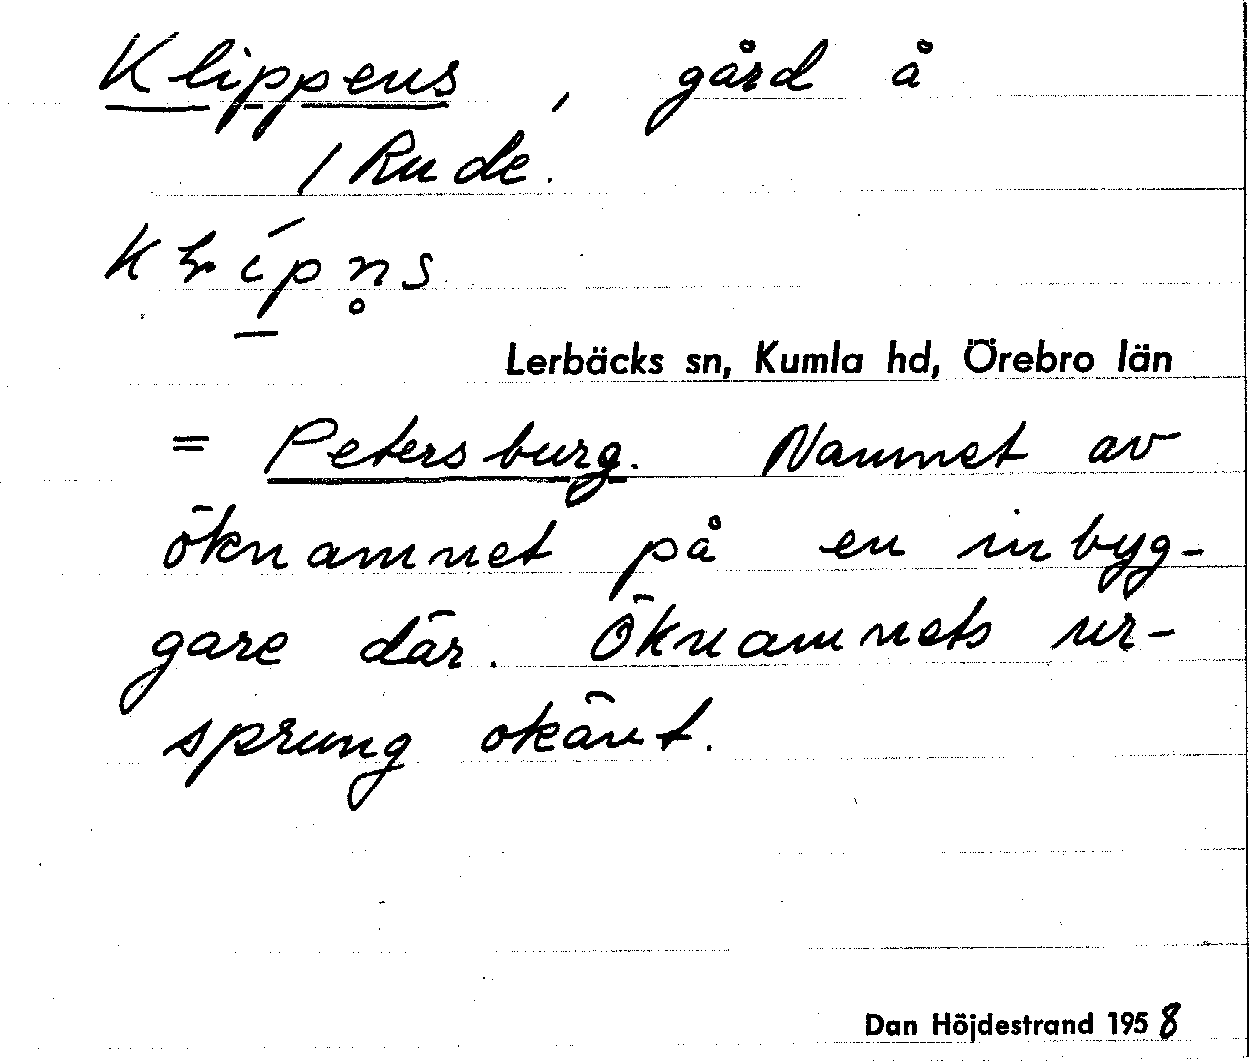 Klippens, gård å
1 Rude.
Lerbäcks sn, Kumla hd, Örebro län
= Petersburg. Namnet av
öknamnet på en inbyg-
gare där. Öknamnets ur-
sprung okänt.
Dan Höjdestrand 1958